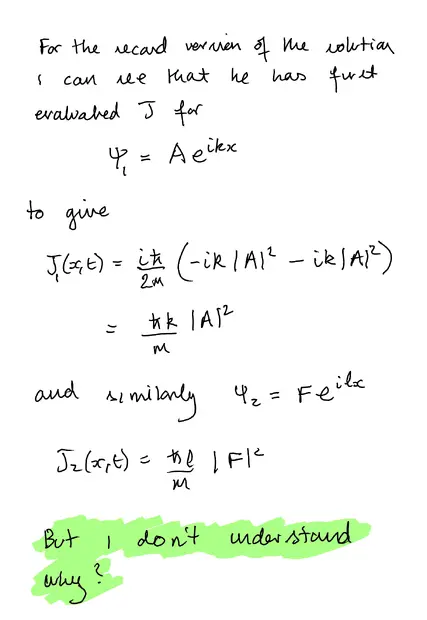 For the second version of the solution
I can see that he has first
evaluated J for
ψ₁ = Ae^{ikx}
to give
J₁(x,t) = iħ/2m (-ik|A|² - ik|A|²)
= ħk/m |A|²
and similarly ψ₂ = Fe^{ilx}
J₂(x,t) = ħl/m |F|²
But I don't understand
why?